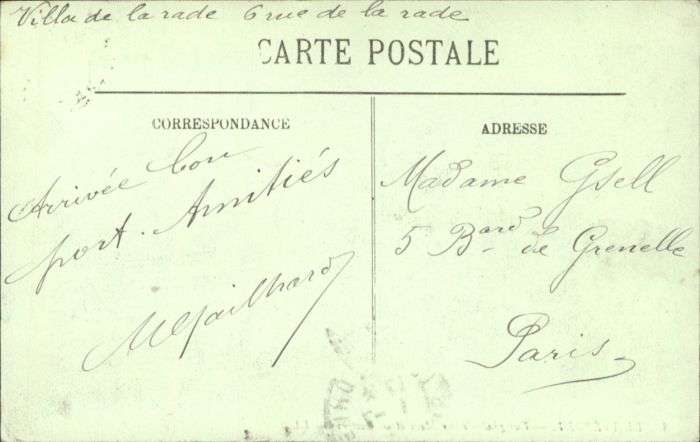 Villa de la rade 6 rue de la rade
CARTE POSTALE
CORRESPONDANCE
Arrivée bon
port. Amitiés
MGailhard
ADRESSE
Madame Gsell
5 Bard de Grenelle
Paris